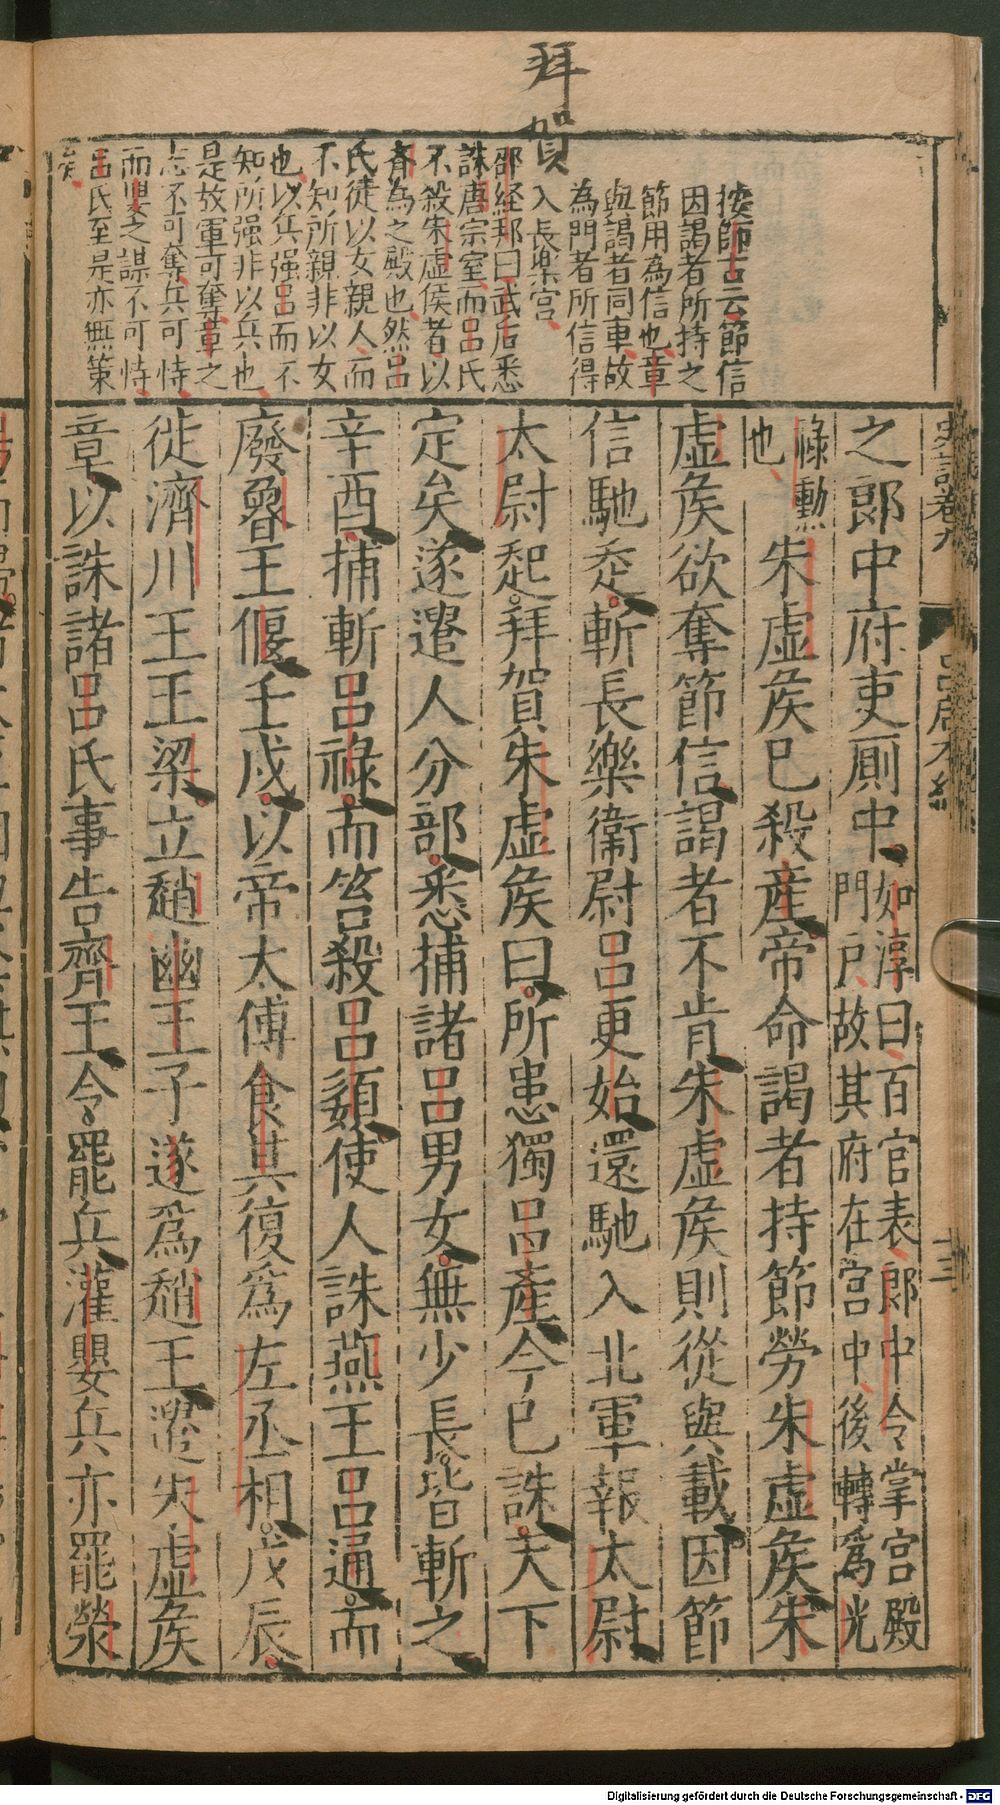 拜賀
按師古云節信
因謁者所持之
節用為信也章
與謁者同車故
為門者所信得
入長樂宮
邵経邦曰武后悉
誅唐宗室而呂氏
不殺朱虛侯者以
齊為之殿也然呂
氏徒以女親人而
不知所親非以女
也以兵强呂而不
知所强非以兵也
是故軍可奪章之
志不可奪兵可恃
而嬰之謀不可恃
呂氏至是亦無策
矣
史記卷九
呂后本紀
十三
之郎中府吏厠中如淳曰百官表郎中令掌宮殿門戶故其府在宮中後轉爲光
祿勳也朱虛矦已殺産帝命謁者持節勞朱虛矦朱
虛矦欲奪節信謁者不肯朱虛矦則從與載因節
信馳走斬長樂衞尉呂更始還馳入北軍報太尉
太尉起拜賀朱虛矦曰所患獨呂産今已誅天下
定矣遂遣人分部悉捕諸呂男女無少長皆斬之
辛酉捕斬呂祿而笞殺呂嬃使人誅燕王呂通而
廢魯王偃壬戌以帝太傅食其復爲左丞相戊辰
徙濟川王王梁立趙幽王子遂爲趙王遣朱虛矦
章以誅諸呂氏事告齊王令罷兵灌嬰兵亦罷滎
Digitalisierung gefördert durch die Deutsche Forschungsgemeinschaft - DFG